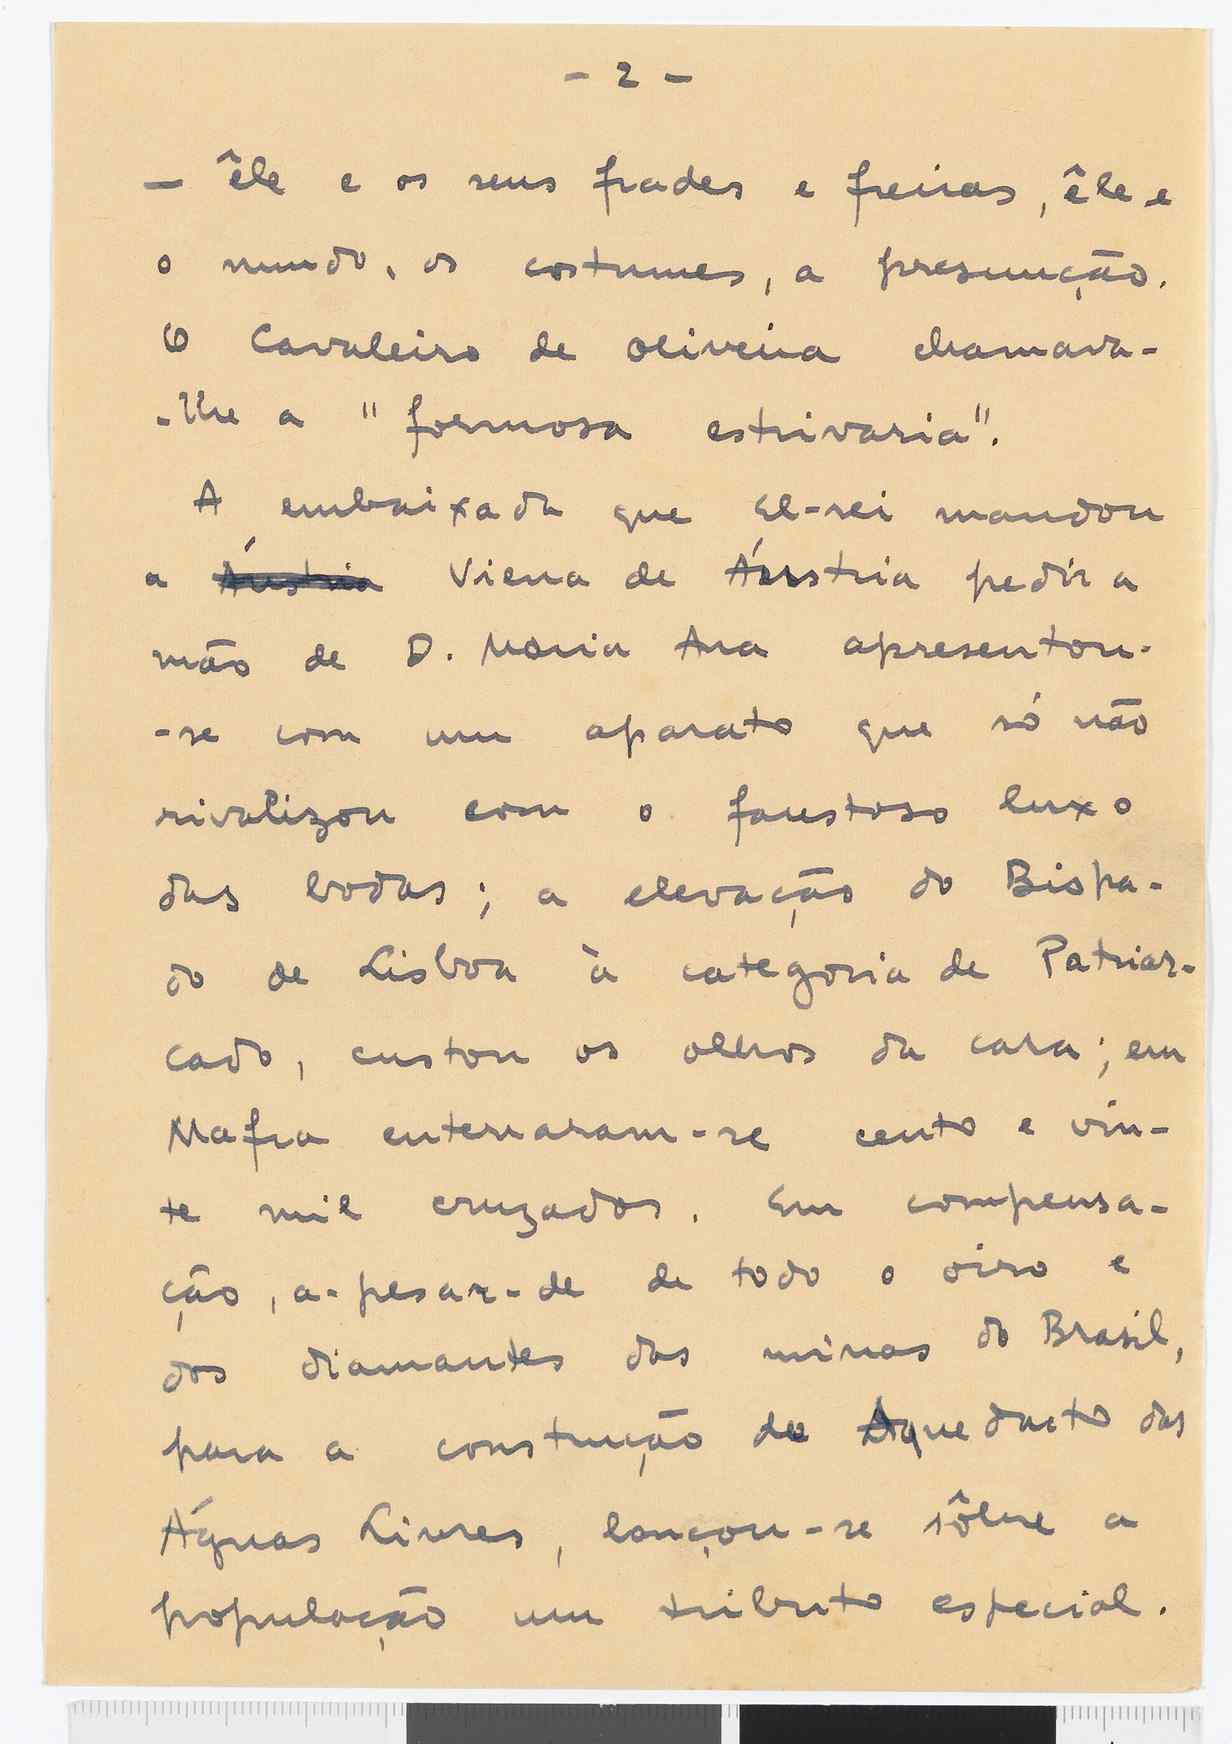 - 2 -
- êle e os seus frades e freiras, êle e
o mundo, os costumes, a presunção.
O Cavaleiro de Oliveira chamava-
-lhe a "formosa estrivaria".
A embaixada que El-rei mandou
a Áustria Viena de Áustria pedir a
mão de D. Maria Ana apresentou-
-se com um aparato que só não
rivalizou com o faustoso luxo
das bodas; a elevação do Bispa-
do de Lisboa à categoria de Patriar-
cado, custou os olhos da cara; em
Mafra enterraram-se cento e vin-
te mil cruzados. Em compensa-
ção, a-pesar-de de todo o oiro e
dos diamantes das minas do Brasil,
para a construção do Aqueducto das
Águas Livres, lançou-se sôbre a
população um tributo especial.